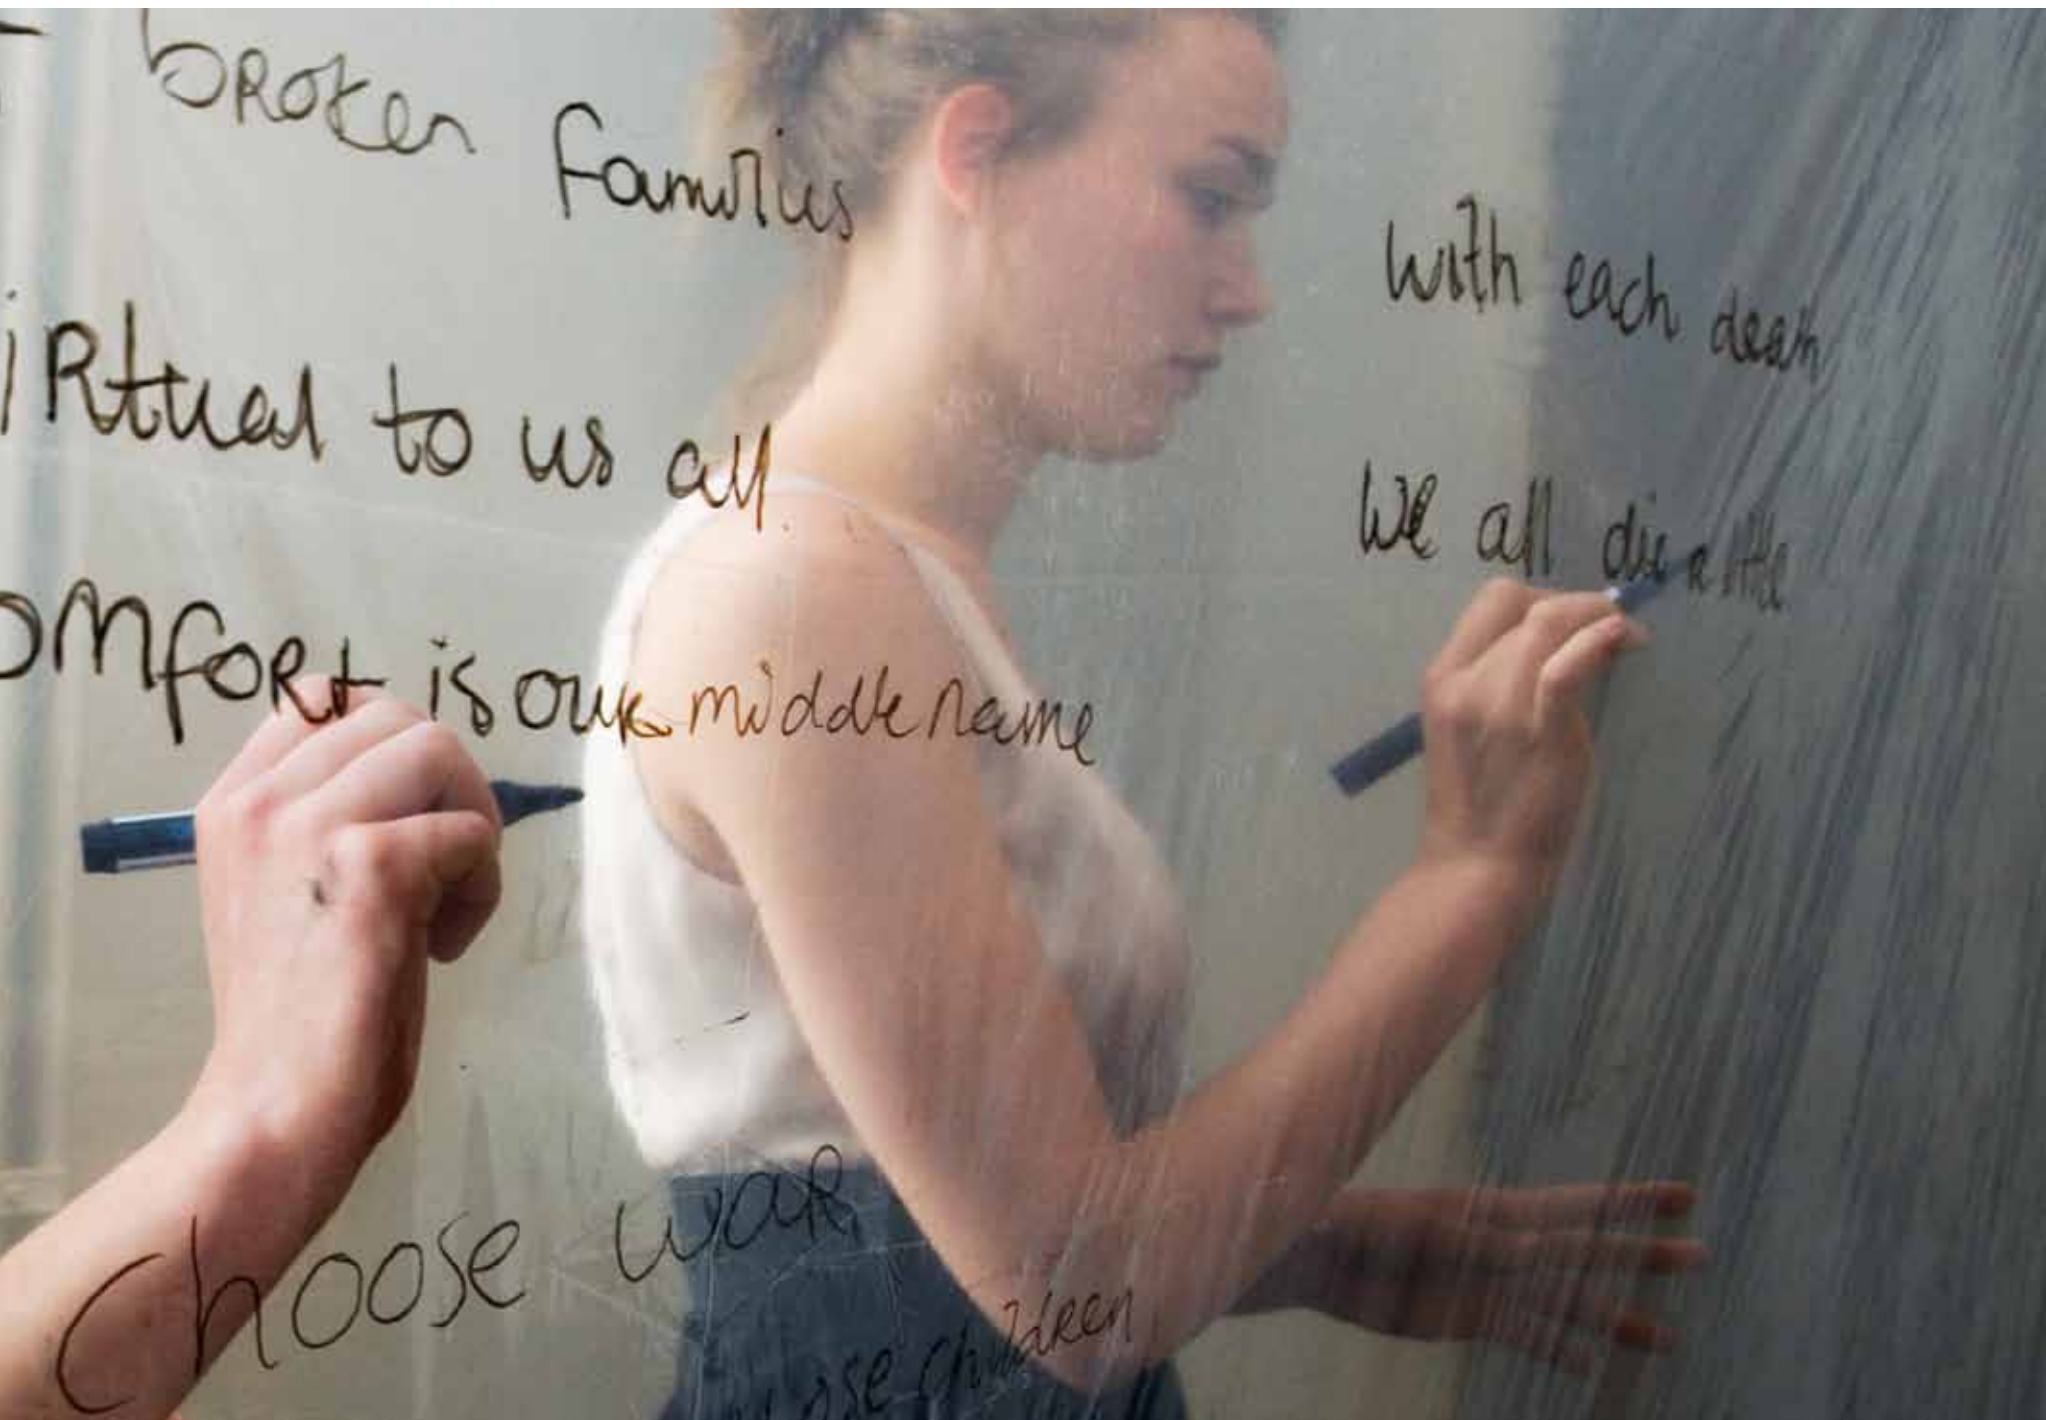 broken families
irtual to us all.
omfort is our middle name
choose war
ose children
with each death
we all die a little